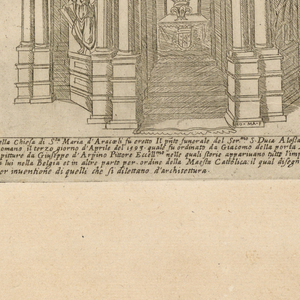 ella Chiesa di S.ta Maria d'Aracœli fu erotto Il pnte funerale del Ser.mo S. Duca Alessa
omano il terzo giorno d'Aprile del 1593 quale fu ordinato da Giacomo della porta
pitture da Giuseppe d'Arpino Pittore Eccell.mo nelle quali storie appariuano tutte l'imp
a lui nella Belgia et in altre parte per ordine della Maestà Cattolica: il qual disegn
er inuentione di quelli che si dilettano d'architettura.